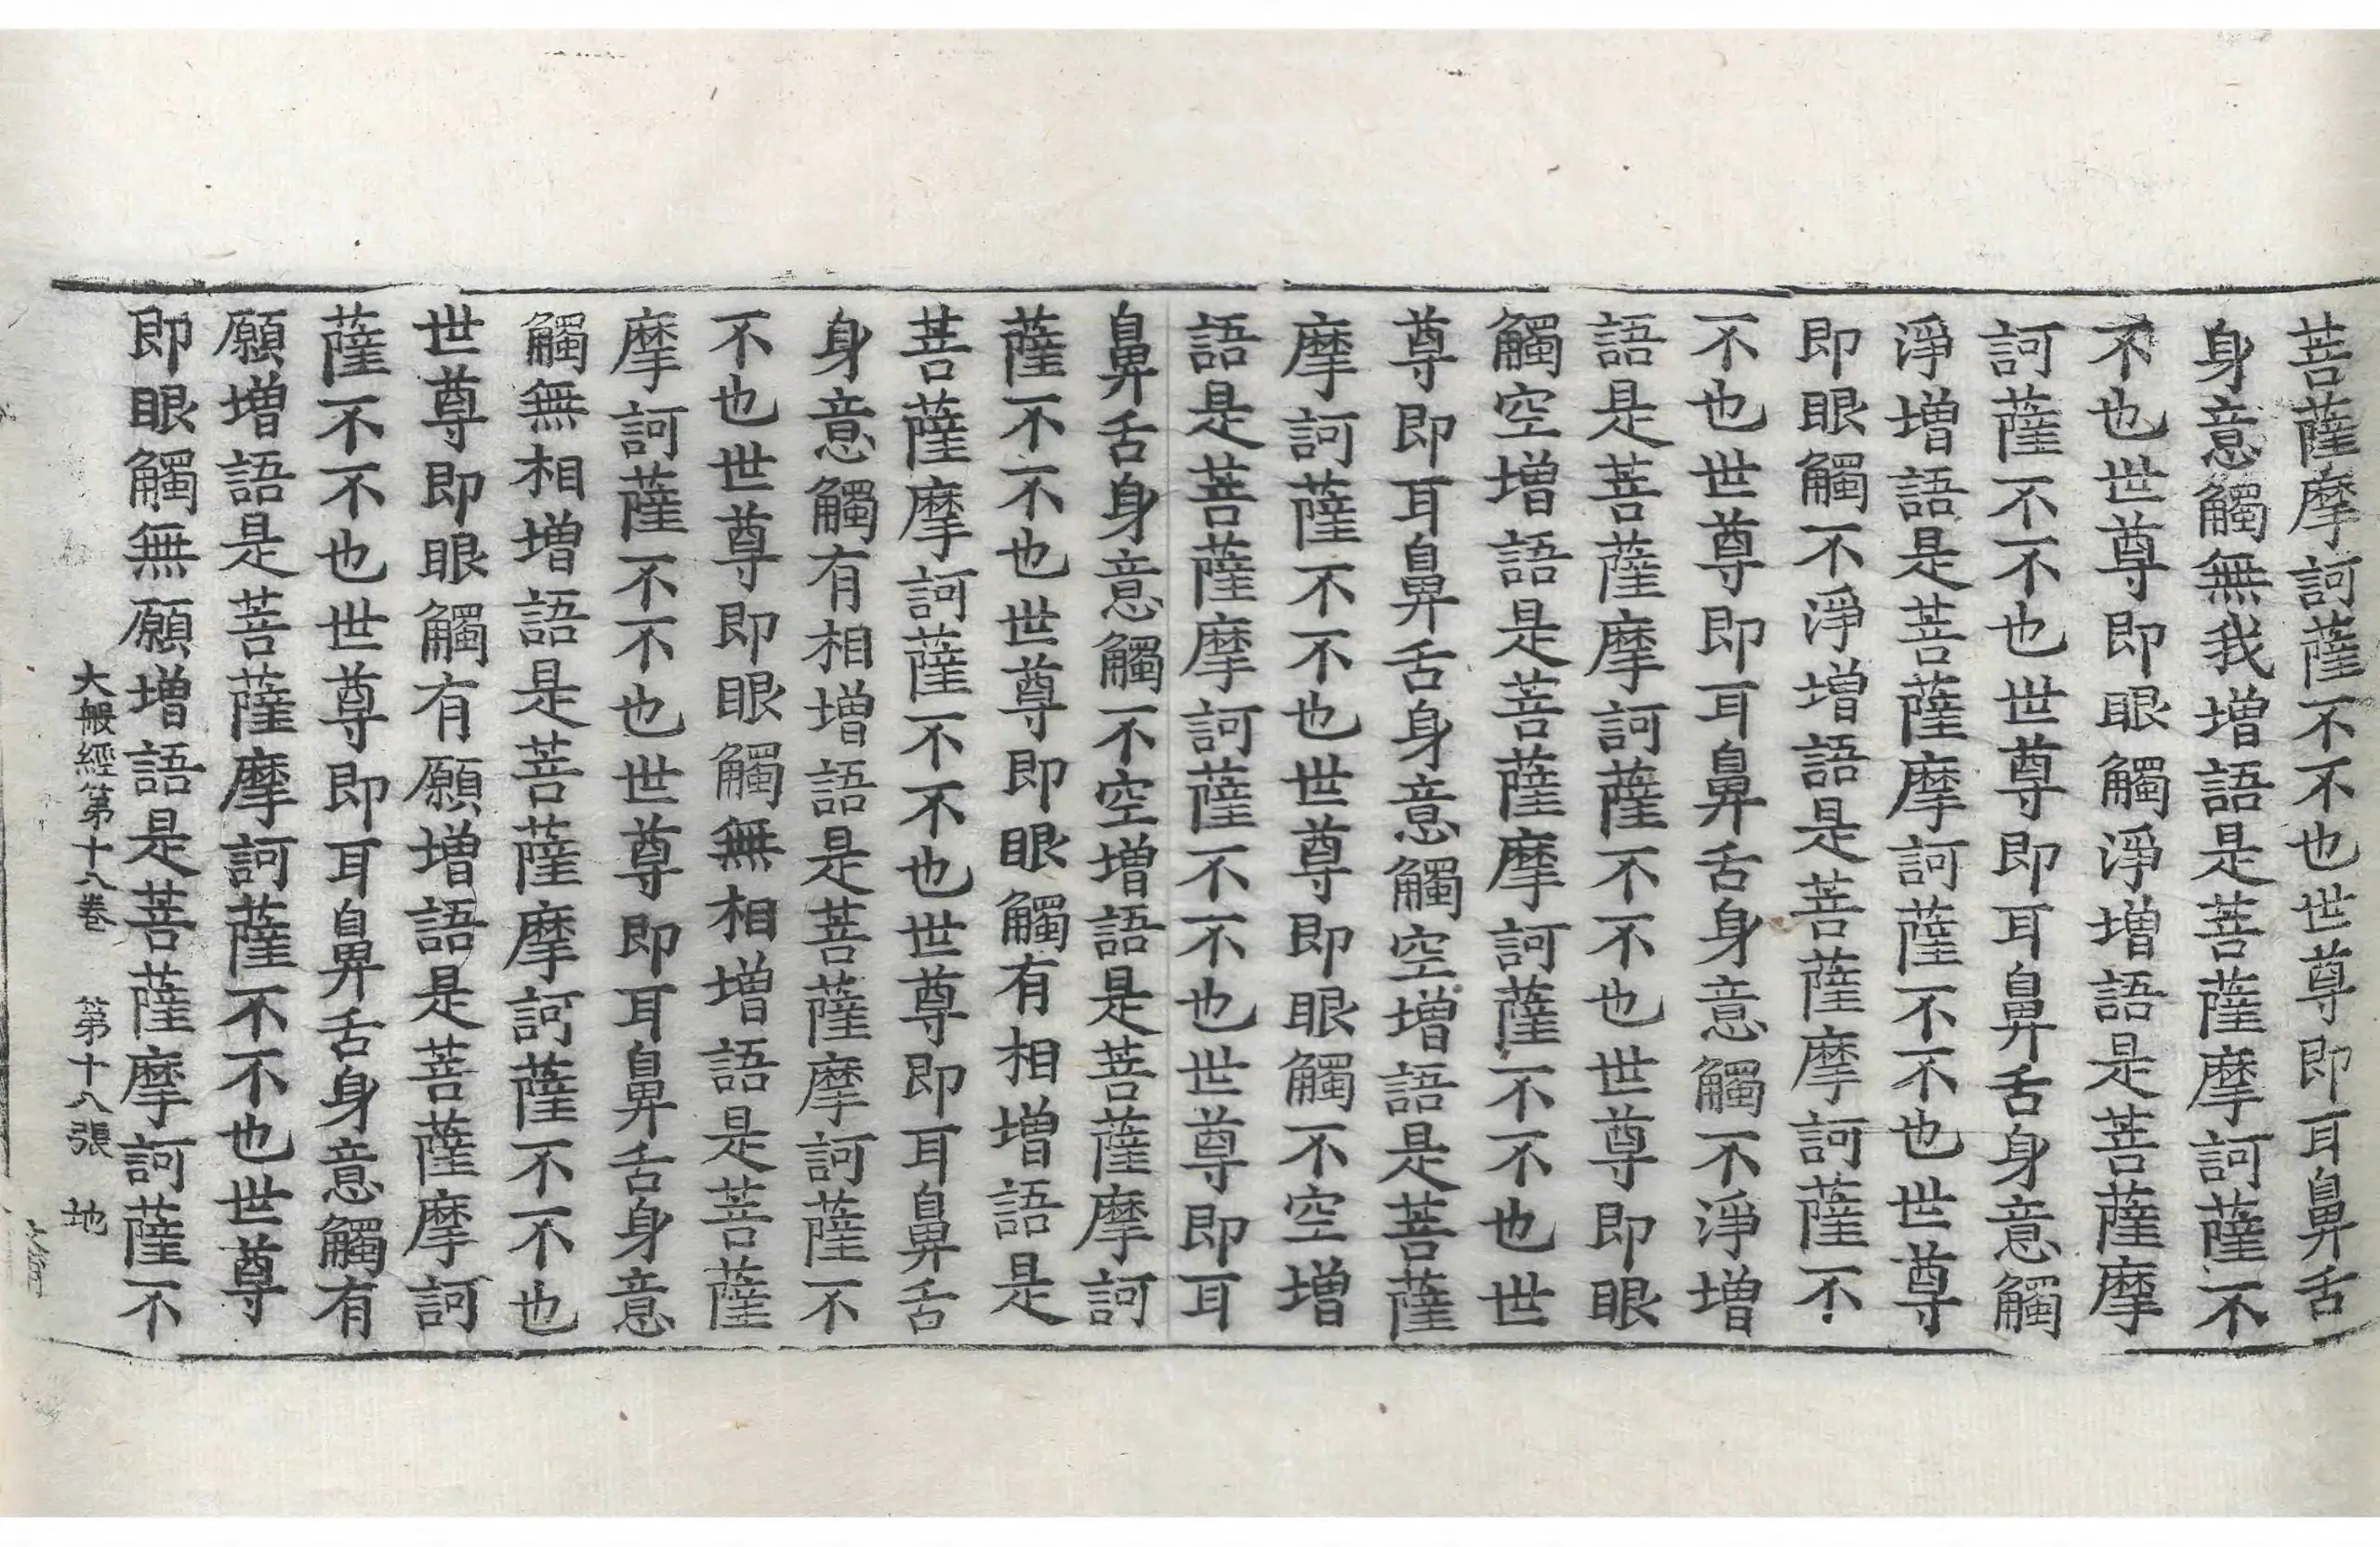 菩薩摩訶薩不不也世尊即耳鼻舌
身意觸無我增語是菩薩摩訶薩不
不也世尊即眼觸淨增語是菩薩摩
訶薩不不也世尊即耳鼻舌身意觸
淨增語是菩薩摩訶薩不不也世尊
即眼觸不淨增語是菩薩摩訶薩不
不也世尊即耳鼻舌身意觸不淨增
語是菩薩摩訶薩不不也世尊即眼
觸空增語是菩薩摩訶薩不不也世
尊即耳鼻舌身意觸空增語是菩薩
摩訶薩不不也世尊即眼觸不空增
語是菩薩摩訶薩不不也世尊即耳
鼻舌身意觸不空增語是菩薩摩訶
薩不不也世尊即眼觸有相增語是
菩薩摩訶薩不不也世尊即耳鼻舌
身意觸有相增語是菩薩摩訶薩不
不也世尊即眼觸無相增語是菩薩
摩訶薩不不也世尊即耳鼻舌身意
觸無相增語是菩薩摩訶薩不不也
世尊即眼觸有願增語是菩薩摩訶
薩不不也世尊即耳鼻舌身意觸有
願增語是菩薩摩訶薩不不也世尊
即眼觸無願增語是菩薩摩訶薩不
大般經第十八卷 第十八張 地